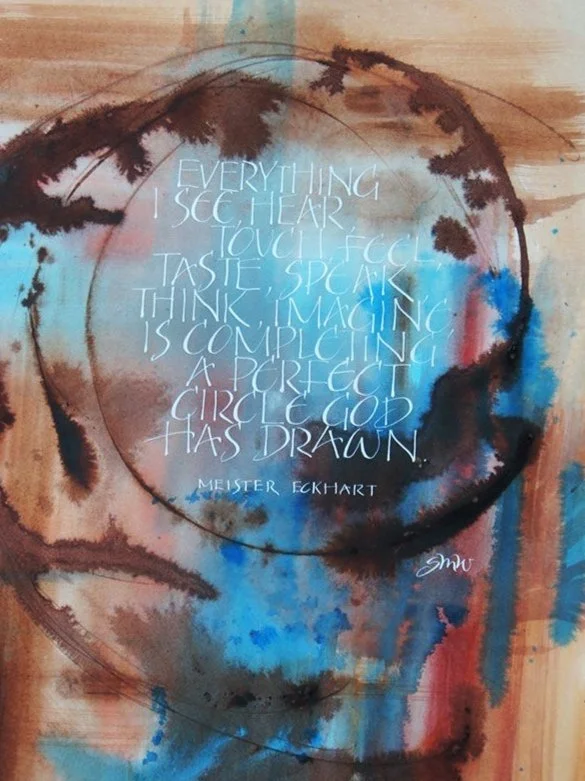 EVERYTHING
I SEE, HEAR,
TOUCH, FEEL,
TASTE, SPEAK
THINK, IMAGINE,
IS COMPLETING
A PERFECT
CIRCLE GOD
HAS DRAWN.
MEISTER ECKHART
SMW